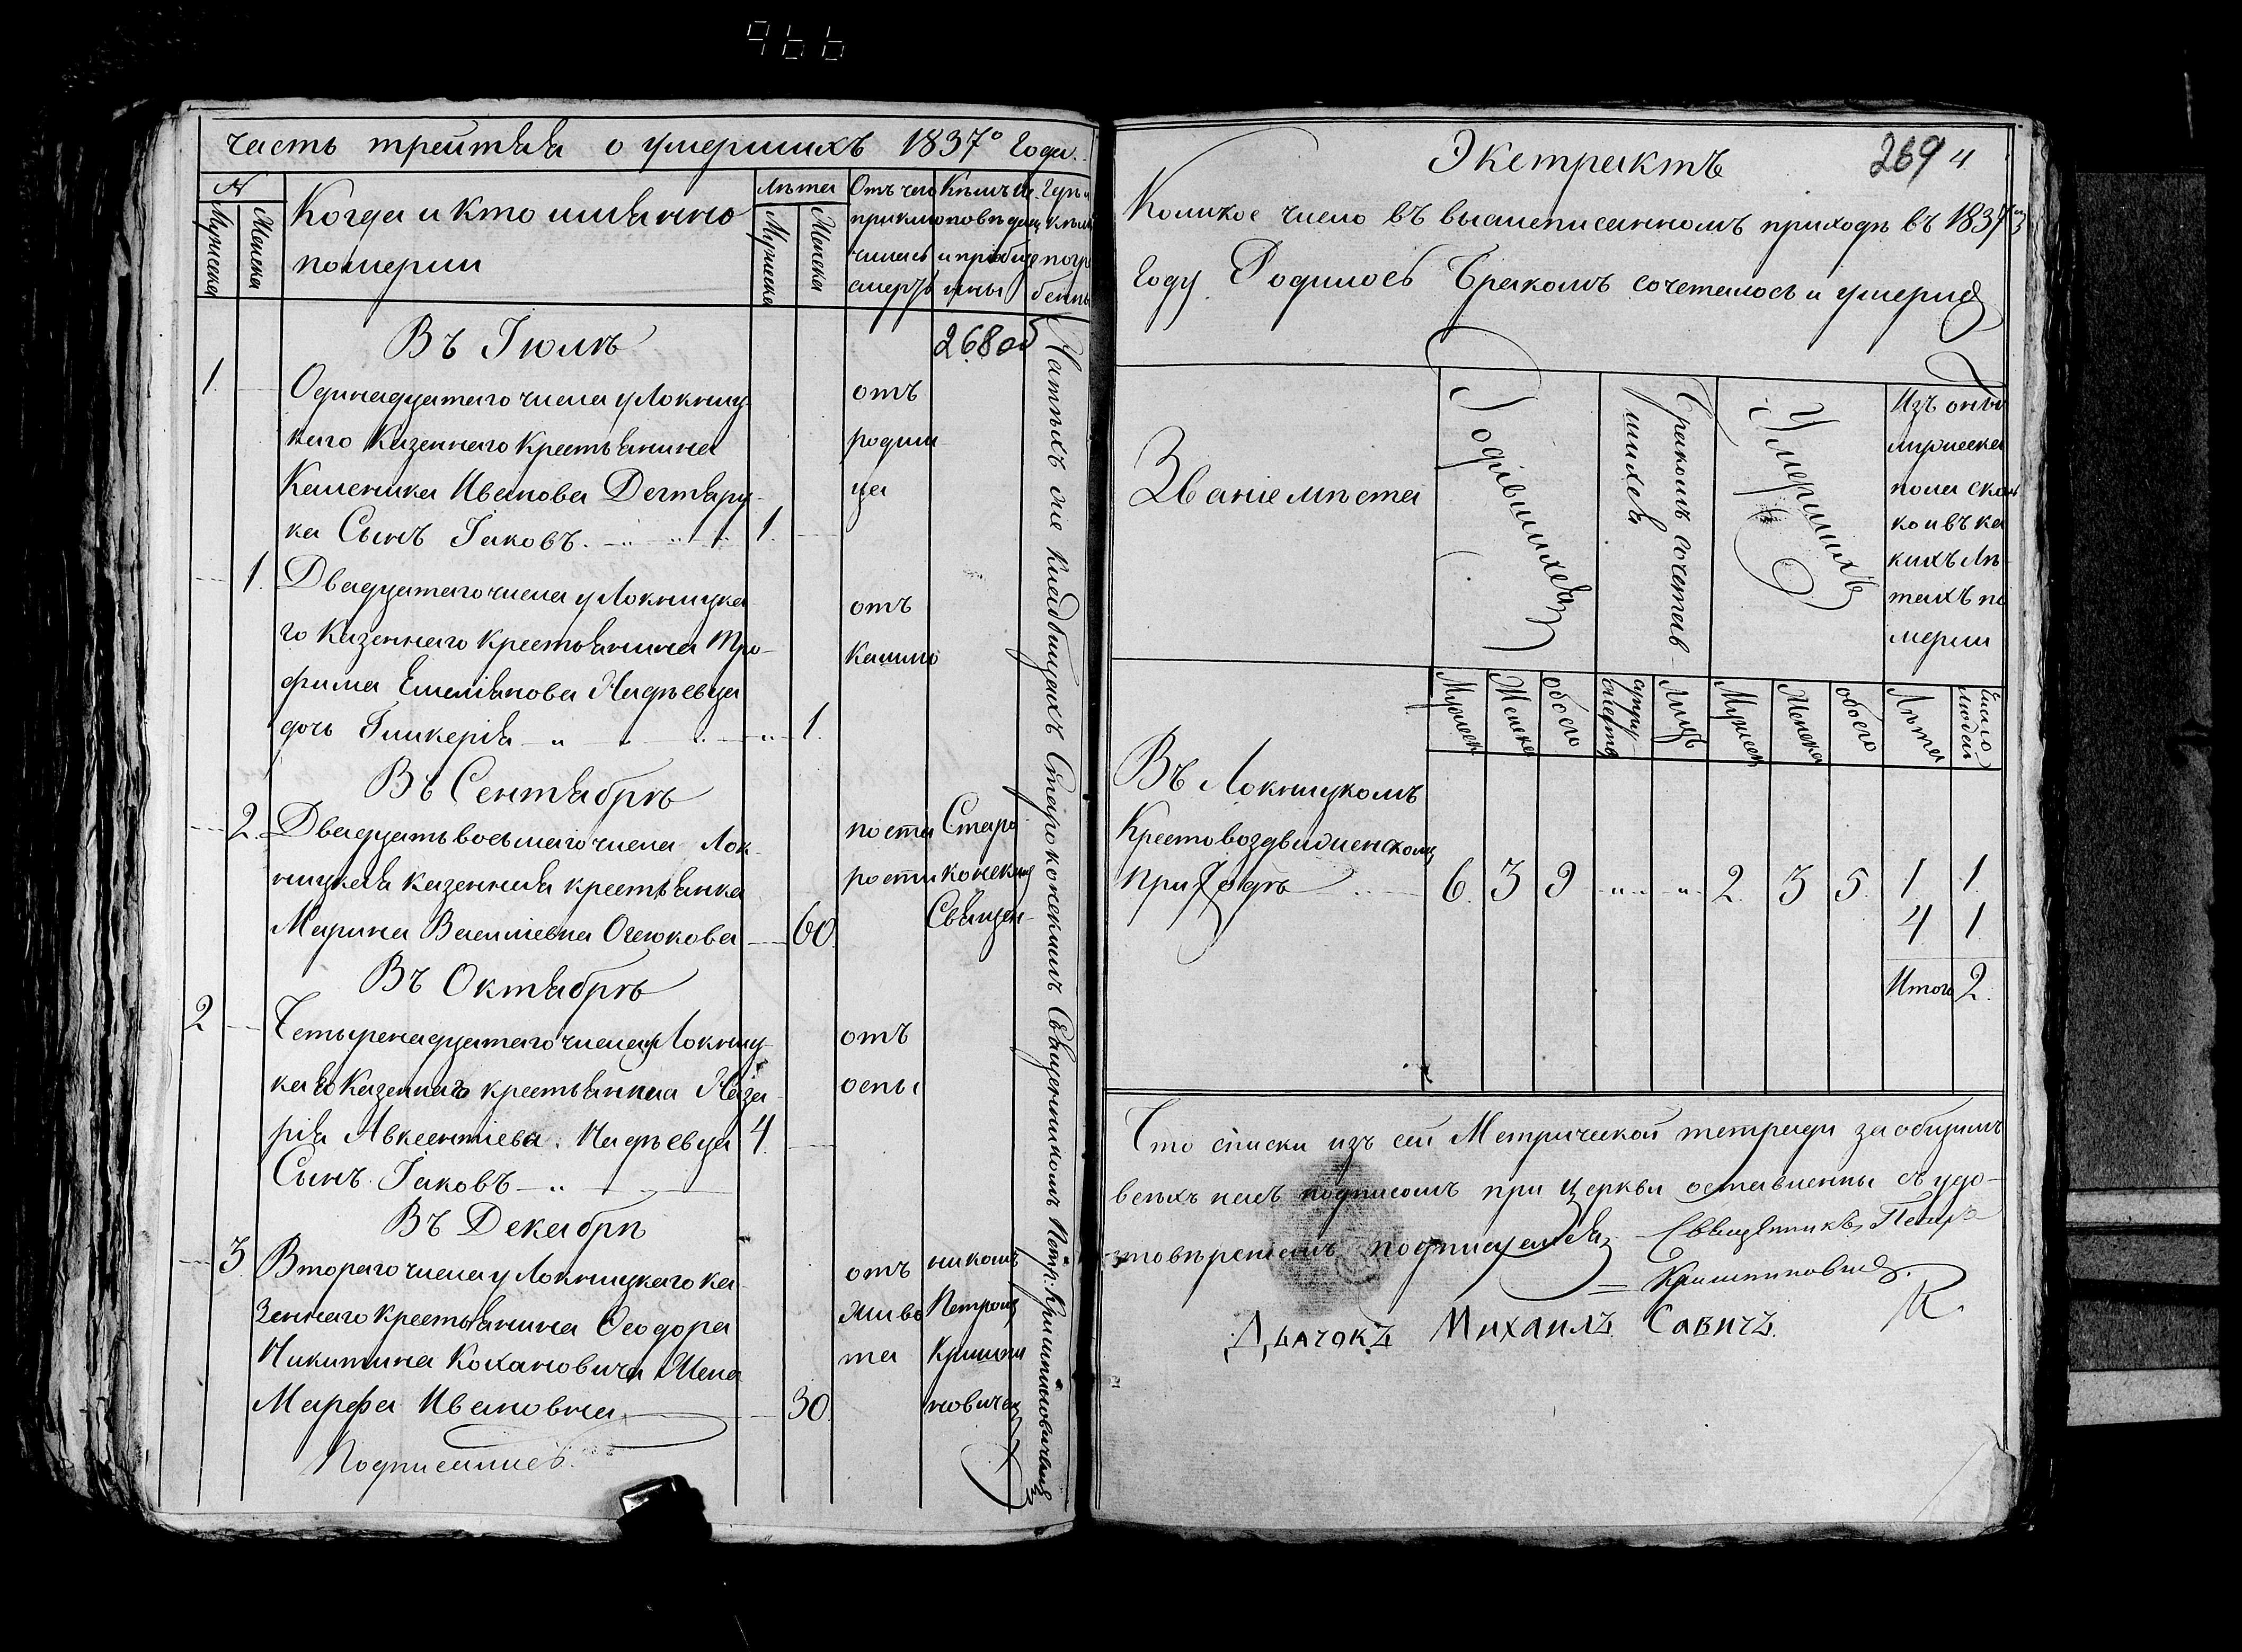 966
часть трейтяя о умершихъ 1837º Года.
№
Мужеска
Женска
Когда и кто имянно
померли
Лѣта
Мужеска
Женска
Отъ чего
приклю
чилась
смерть
Кѣмъ Ис
повѣдан
и приобще
ны
Гдѣ и
кѣмъ
погре
бенны
268 об
Въ Іюлѣ
1.
Одинадцатаго числа у Локниц-
каго Казеннаго Крестьянина
Каленика Иванова Дегтяру-
ка Сынъ Іаковъ.
1.
отъ
родим
ца
1.
Двадцатаго числа у Локницка
го Казеннаго Крестьянина Тро-
фима Емеліянова Надѣевца
дочь Гликерія
1.
отъ
Кашлю
Въ Сентябрѣ
2.
Двадцать восьмаго числа Лок-
ницкая Казенная крестьянка
Марина Васильевна
60.
по ста
рости
Старо
конскимъ
Священ-
Въ Октябрѣ
2
Четыренадцатаго числа у Локниц-
каго Казеннаго крестьянина Наза-
рія Авксентіева Надѣевца
Сынъ Іаковъ
4.
отъ
оспы
Въ Декабрѣ
3.
Втораго числа у Локницкаго ка-
зеннаго Крестьянина Ѳеодора
Никитина Кохановича Жена
Марфа Ивановна
30.
отъ
живо
та
никомъ
Петромъ
новичемъ
Подписались
кладбищахъ Старо конскимъ Священникомъ Петр.
Экстрактъ
269 4
Коликое число въ вышеписанномъ приходѣ въ 1837мъ
Году Родилось Бракомъ сочеталось и умерло
Званіе мѣста
Родившихся
Бракомъ сочетав
шихся
Умершихъ
Изъ онаго
мужеска
пола сколь
ко и въ ка
кихъ лѣ-
тахъ по
мерли
Мужеск
Женска
обоего
супру-
жествъ
Лицъ
Мужеск
Женска
обоего
Лѣта
Число
людей
Въ Локницкомъ
Крестовоздвиженскомъ
приходѣ
6. 3 9 „ „ „ 2. 3 5. 1 1.
4 1
Итого 2.
Что списки изъ сей Метрической тетради за общимъ
всѣхъ насъ подписомъ при Церкви оставленны съ удо-
стовѣреніемъ подписуемся Священникъ Петръ
Дьячокъ Михаилъ Савичъ.